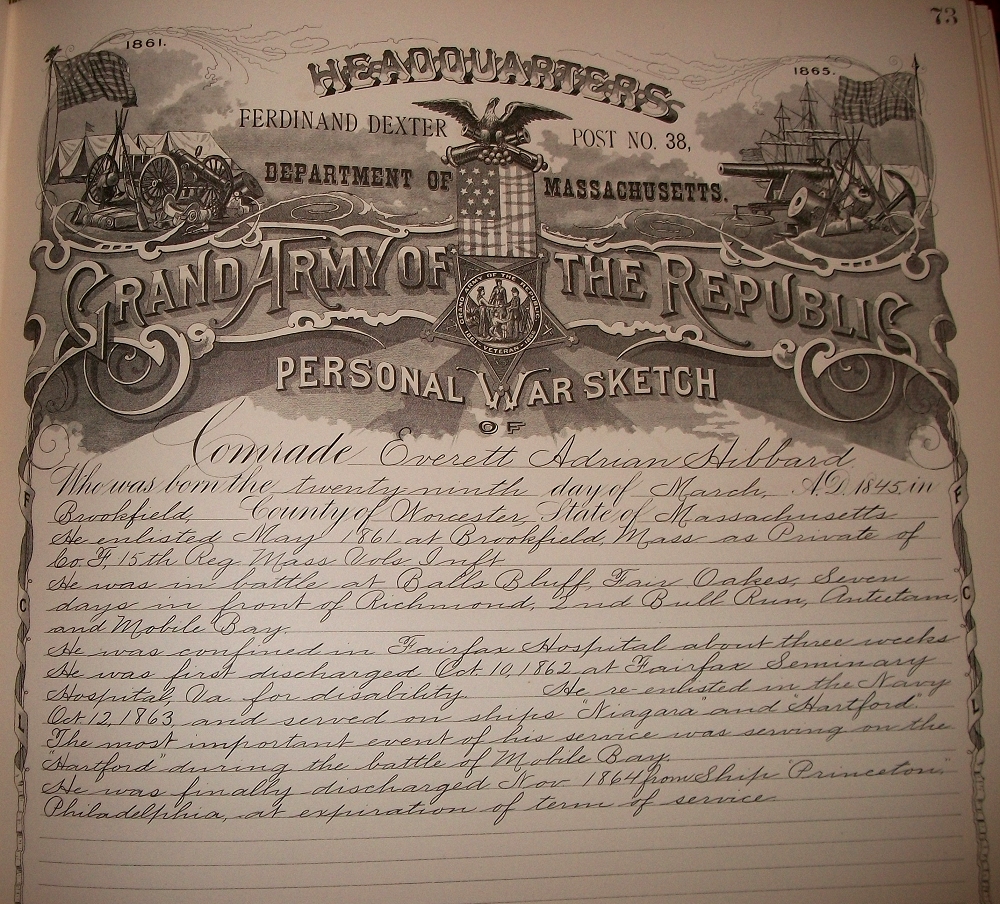 73
1861.
1865.
HEADQUARTERS
FERDINAND DEXTER POST NO. 38,
DEPARTMENT OF MASSACHUSETTS.
GRAND ARMY OF THE REPUBLIC
GRAND ARMY OF THE REPUBLIC
1861 - VETERAN - 1866
PERSONAL WAR SKETCH
OF
Comrade Everett Adrian Hibbard
Who was born the twenty-ninth day of March, A.D. 1845, in
Brookfield, County of Worcester, State of Massachusetts
He enlisted May 1861 at Brookfield, Mass as Private of
Co. F, 15th Reg Mass Vols Inft
He was in battle at Balls Bluff, Fair Oakes, Seven
days in front of Richmond, 2nd Bull Run, Antietam,
and Mobile Bay.
He was confined in Fairfax Hospital about three weeks
He was first discharged Oct. 10, 1862, at Fairfax Seminary
Hospital, Va for disability. He re-enlisted in the Navy
Oct 12, 1863 and served on ships "Niagara" and "Hartford."
The most important event of his service was serving on the
"Hartford" during the battle of Mobile Bay.
He was finally discharged Nov. 1864 from Ship "Princeton,"
Philadelphia, at expiration of term of service.
F
C
L
F
C
L